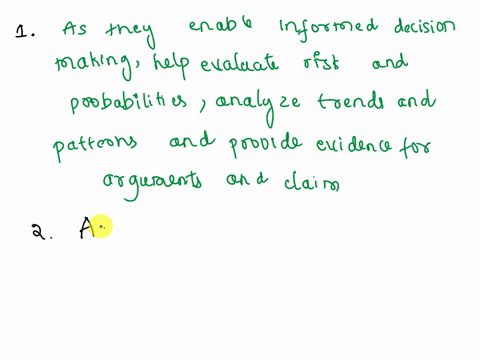 1. As they enable informed decision
making, help evaluate risk and
probabilities, analyze trends and
patterns and provide evidence for
arguments and claim
2. A.